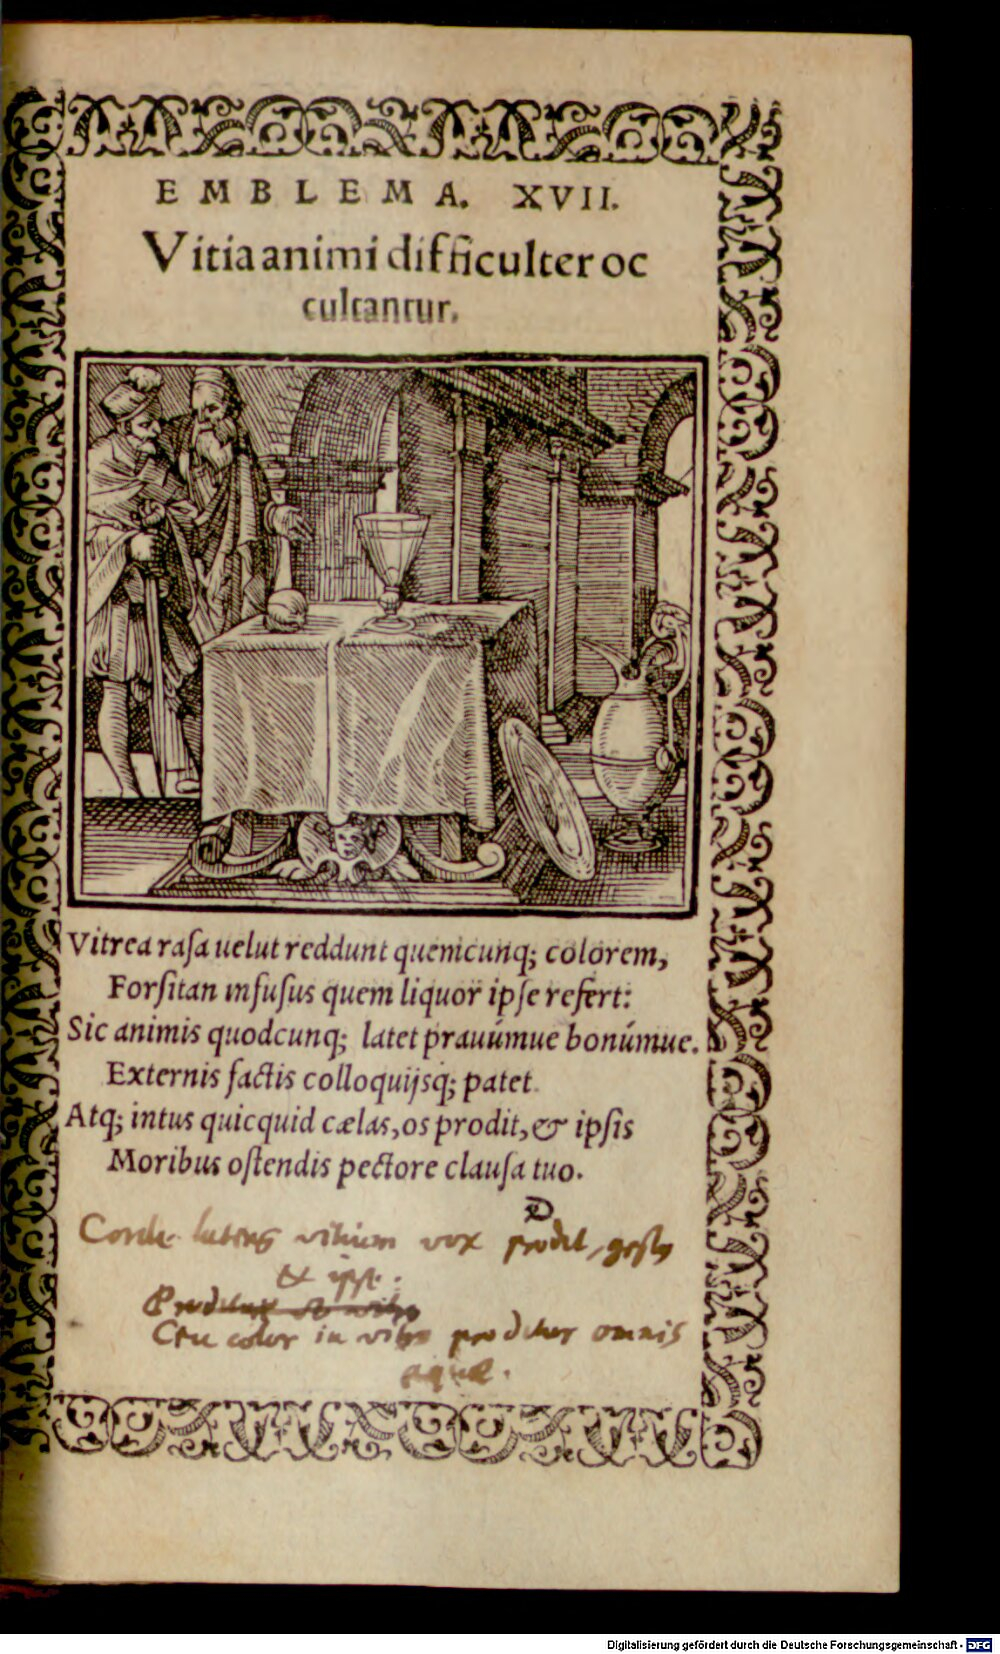 EMBLEMA. XVII.
Vitia animi difficulter oc
cultantur.
Vitrea rasa uelut reddunt quemcunq; colorem,
Forsitan infusus quem liquor ipse refert:
Sic animis quodcunq; latet prauúmue bonúmue.
Externis factis colloquijsq; patet.
Atq; intus quicquid cælas, os prodit, & ipsis
Moribus ostendis pectore clausa tuo.
Corde latens vitium vox prodit, gestus
& ipse.
Ceu color in vitro proditur omnis
aquæ.
Digitalisierung gefördert durch die Deutsche Forschungsgemeinschaft - DFG